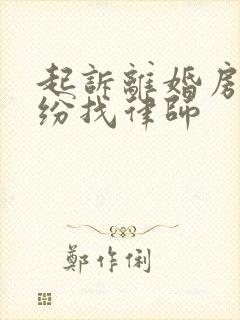 起訴離婚房
紛找律師
鄭作俐